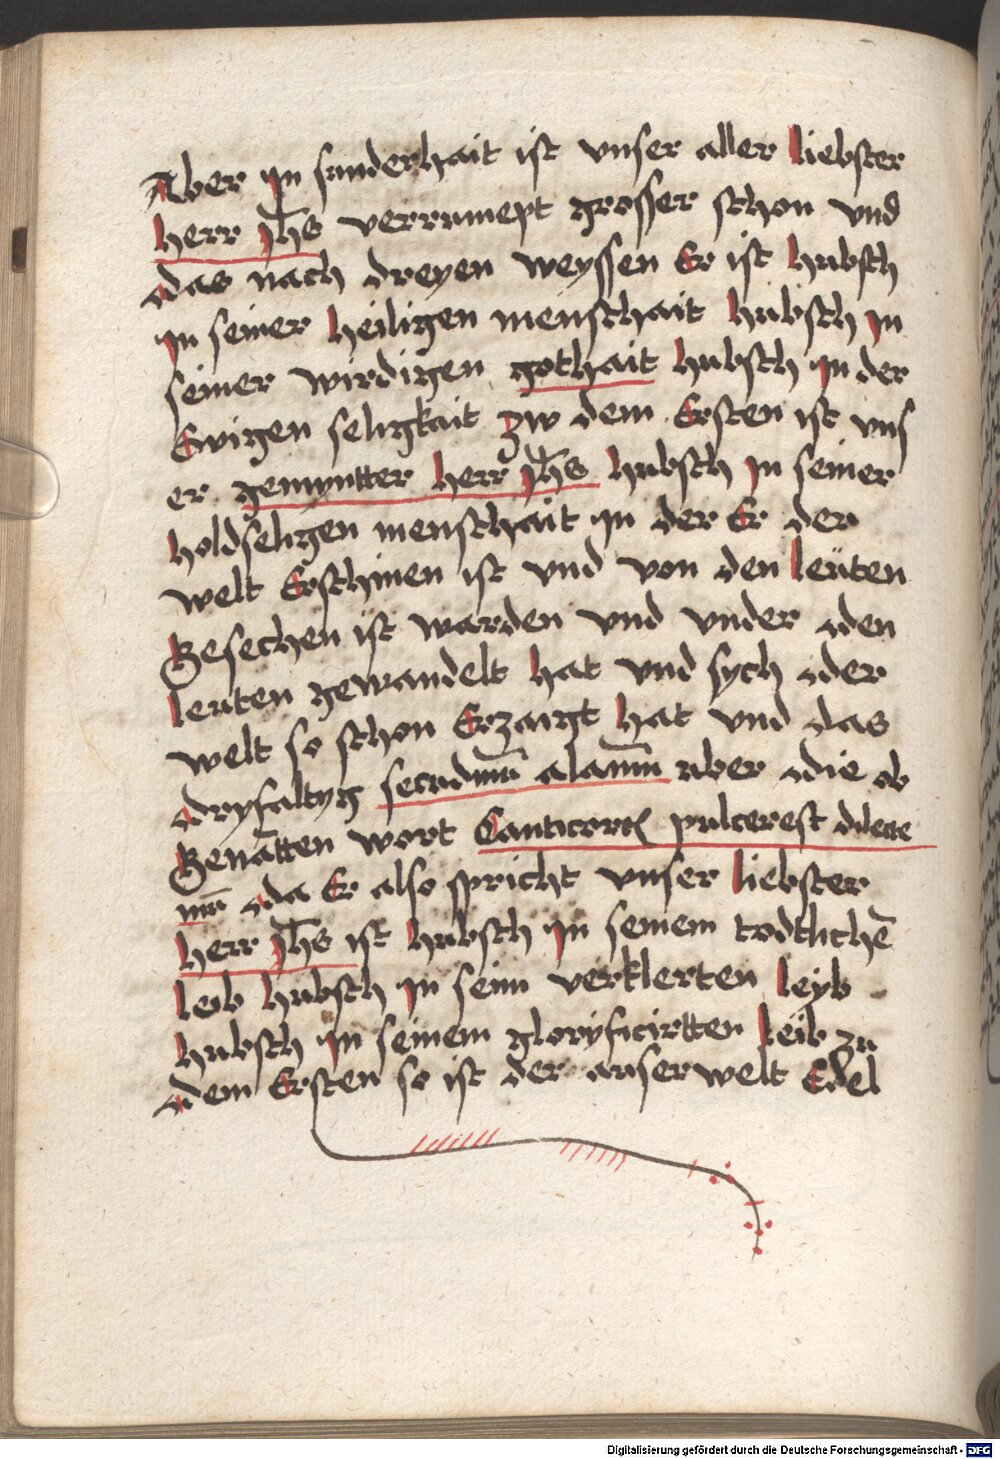 Aber jn sunderhait ist vnser aller liebster
herr jhs verrumept grosser schon vnd
das nach dreyen weyssen Er ist hubsch
jn seiner heiligen menschait hubsch jn
seiner wirdigen gothait hubsch jn der
Ewigen seligkait zw dem Ersten ist vns
er gemyntter herr jhs hubsch jn seiner
holdseligen menschait jn der Er der
welt Erschinen ist vnd von den leüten
Gesechen ist warden vnd vnder den
leuten gewandelt hat vnd sych der
welt so schon Erzaigt hat vnd das
dryfaltyg secūdum alanum vber die ob
Genātten wort Canticorū pulcerest dilecte
mī da Er also spricht vnser liebster
herr jhs ist hubsch jn seinem todtlichē
leib hubsch jn seim verklerten leyb
hubsch jn seinem gloryficirtten leib zu
dem Ersten so ist der auserwelt Edel
Digitalisierung gefördert durch die Deutsche Forschungsgemeinschaft - DFG